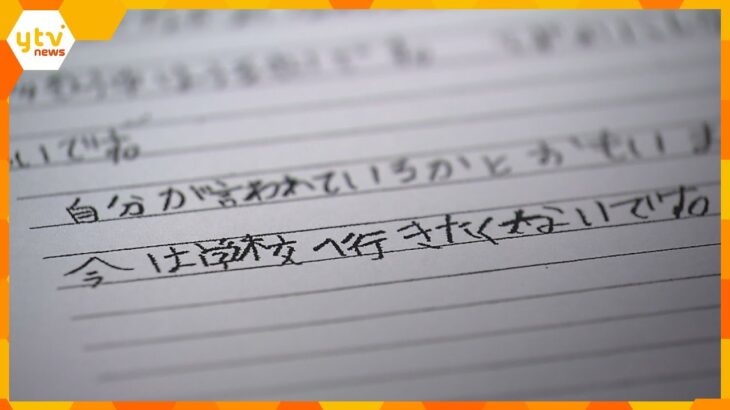 ytv
news
いです。
自分が言われているかとおもいま
今は学校へ行きたくないです。